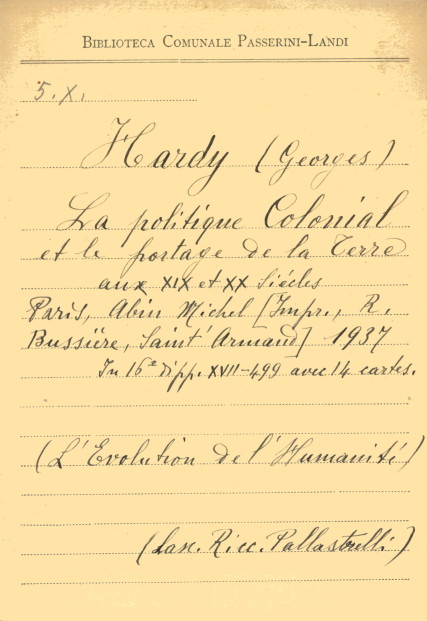 BIBLIOTECA COMUNALE PASSERINI-LANDI
5. X.
Hardy (Georges)
La politique Colonial
et le portage de la Terre
aux XIX et XX Siécles
Paris, Abin Michel [Impr., R.
Bussiëre, Saint' Armand] 1937
In 16º di pp. XVII-499 avec 14 cartes.
(L'Evolution de l'Humanité)
(Lasc. Ricc. Pallastrelli)